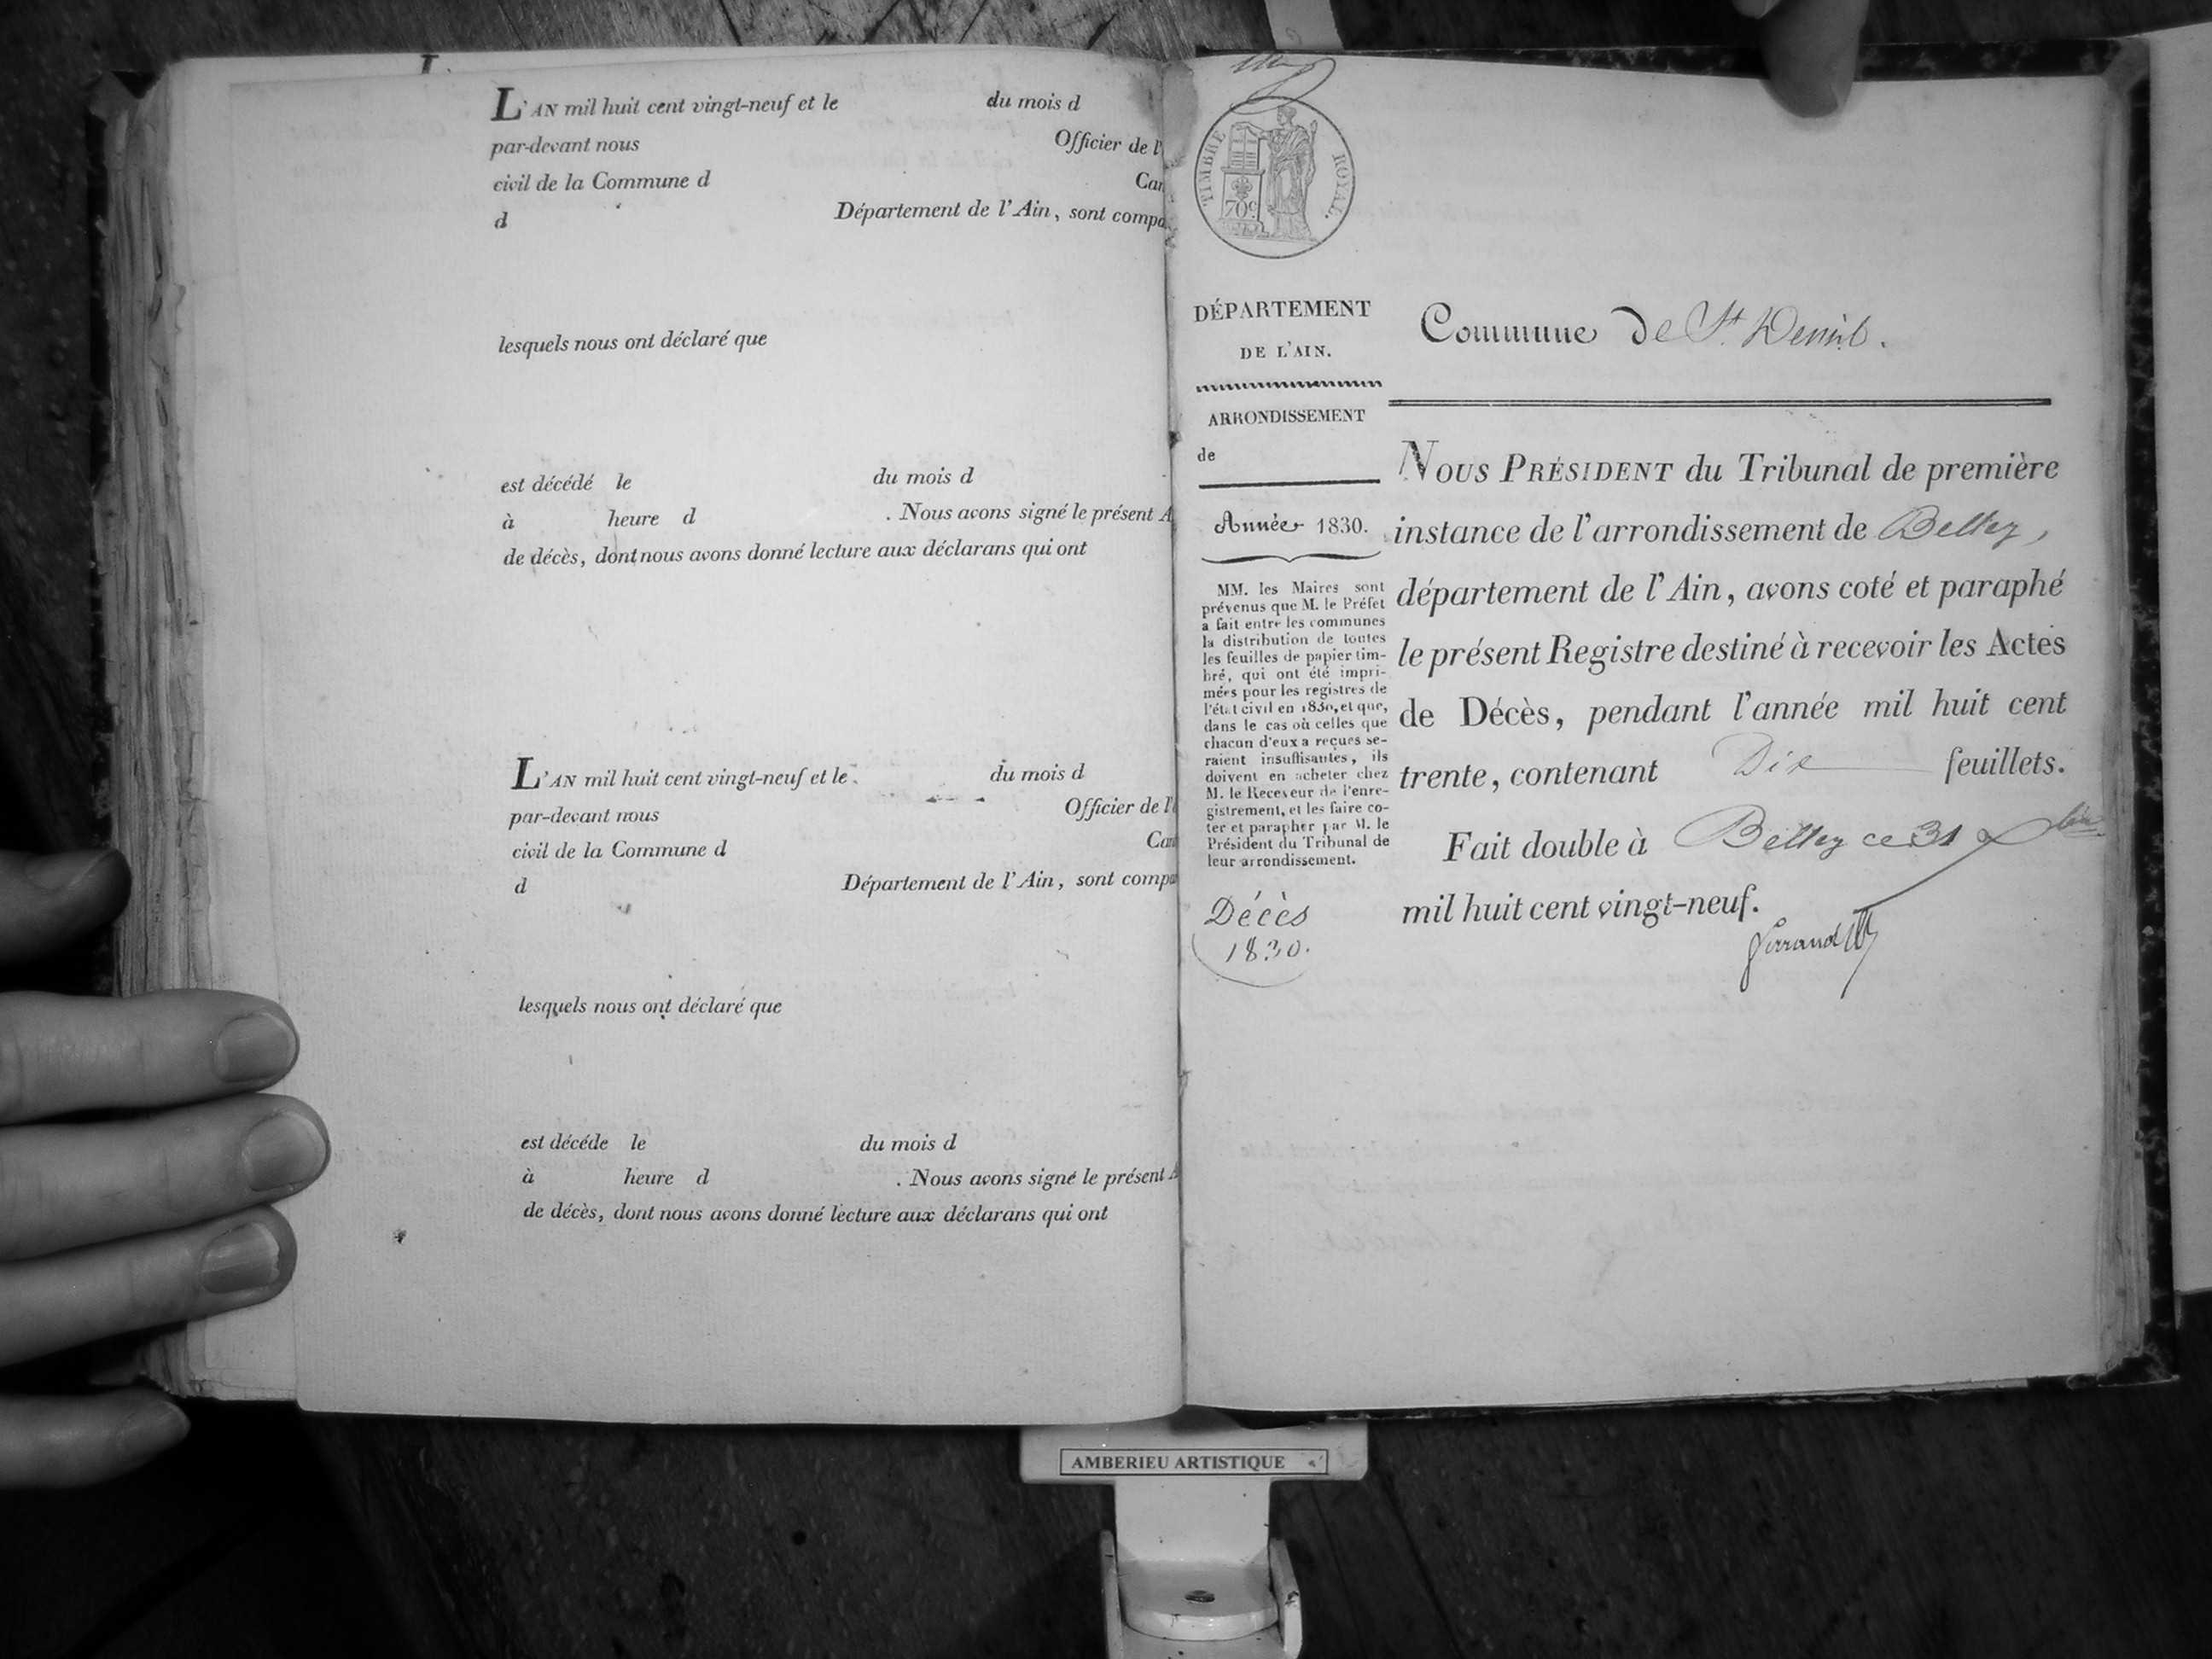 L'AN mil huit cent vingt-neuf et le du mois d
par-devant nous Officier de l'
civil de la Commune d Can
d Département de l'Ain, sont compa
lesquels nous ont déclaré que
est décédé le du mois d
à heure d . Nous avons signé le présent A
de décès, dont nous avons donné lecture aux déclarans qui ont
L'AN mil huit cent vingt-neuf et le du mois d
par-devant nous Officier de l'
civil de la Commune d Can
d Département de l'Ain, sont compa
lesquels nous ont déclaré que
est décéde le du mois d
à heure d . Nous avons signé le présent A
de décès, dont nous avons donné lecture aux déclarans qui ont
TIMBRE ROYAL.
70c
DÉPARTEMENT
DE L'AIN.
ARRONDISSEMENT
de
Année 1830.
MM. les Maires sont
prévenus que M. le Préfet
a fait entre les communes
la distribution de toutes
les feuilles de papier tim-
bré, qui ont été impri-
mées pour les registres de
l'état civil en 1830, et que,
dans le cas où celles que
chacun d'eux a reçues se-
raient insuffisantes, ils
doivent en acheter chez
M. le Receveur de l'enre-
gistrement, et les faire co-
ter et parapher par M. le
Président du Tribunal de
leur arrondissement.
Décès
1830.
Commune de St. Denis.
NOUS PRÉSIDENT du Tribunal de première
instance de l'arrondissement de Belley,
département de l'Ain, avons coté et paraphé
le présent Registre destiné à recevoir les Actes
de Décès, pendant l'année mil huit cent
trente, contenant Dix feuillets.
Fait double à Belley ce 31 xbre
mil huit cent vingt-neuf.
AMBERIEU ARTISTIQUE